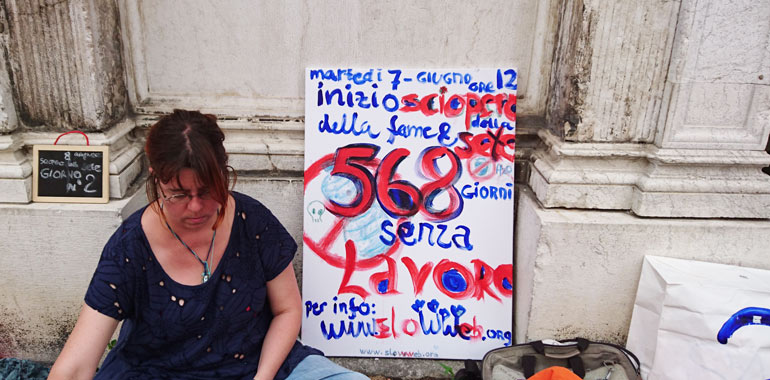 8 giugno
GIORNO
N° 2
martedì 7 - GIUGNO ORE 12
inizio sciopero
della fame & della sete
568
GIORNI
senza
Lavoro
per info:
www.slowweb.org
www.slowweb.org